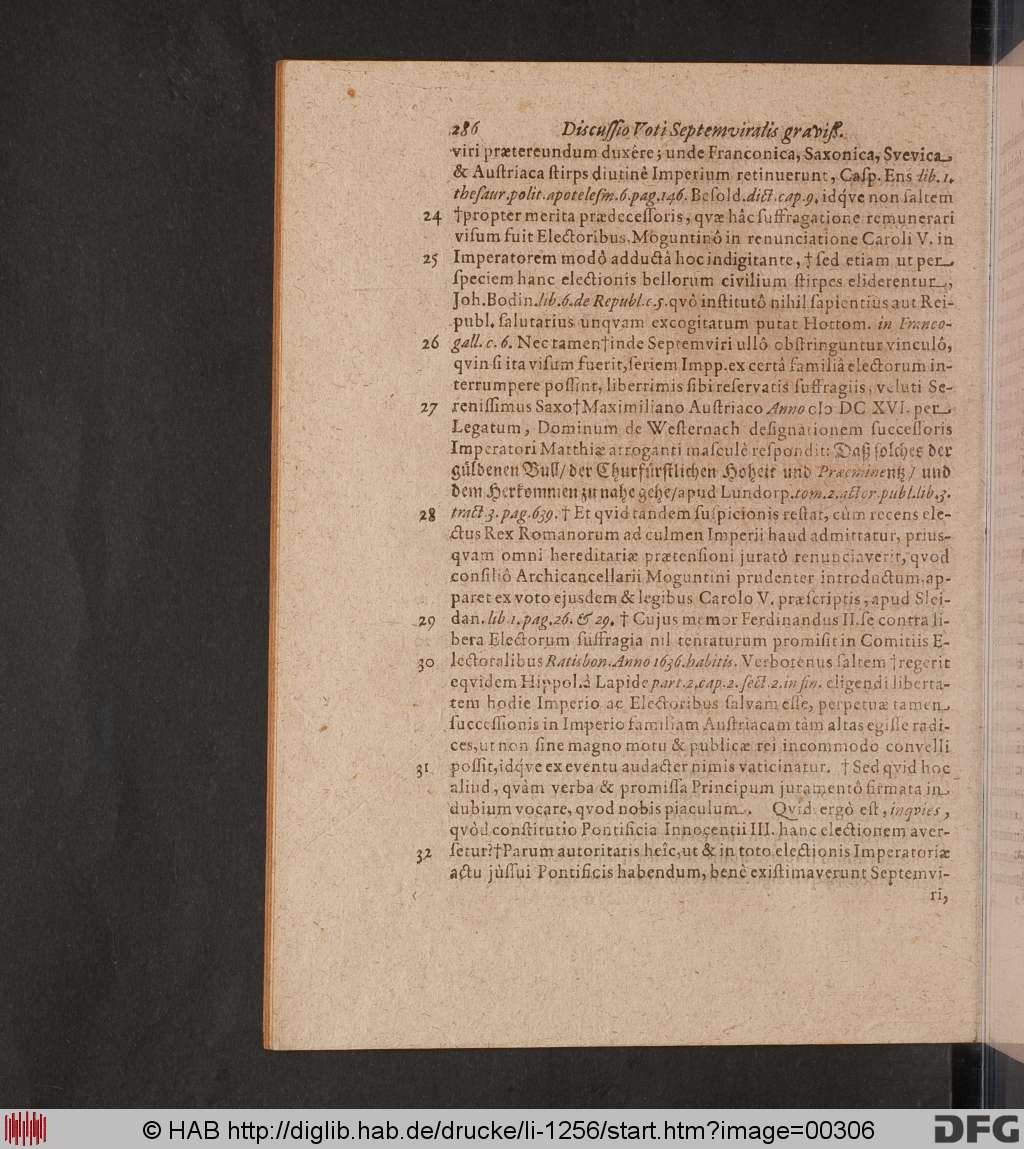 286 Discussio Voti Septemviralis graviss.
viri prætereundum duxêre; unde Franconica, Saxonica, Svevica
& Austriaca stirps diutinè Imperium retinuerunt, Casp. Ens lib. 1.
thesaur. polit. apotelesm. 6. pag. 146. Besold. dict. cap. 9. idq́ve non saltem
24 †propter merita prædecessoris, qvæ hâc suffragatione remunerari
visum fuit Electoribus, Moguntinô in renunciatione Caroli V. in
25 Imperatorem modô adductâ hoc indigitante, † sed etiam ut per
speciem hanc electionis bellorum civilium stirpes eliderentur,
Joh. Bodin. lib. 6. de Republ. c. 5. qvô institutô nihil sapientius aut Rei-
publ. salutarius unqvam excogitatum putat Hottom. in Franco-
26 gall. c. 6. Nec tamen†inde Septemviri ullô obstringuntur vinculô,
qvin si ita visum fuerit, seriem Impp. ex certâ familiâ electorum in-
terrumpere possint, liberrimis sibi reservatis suffragiis, veluti Se-
27 renissimus Saxo†Maximiliano Austriaco Anno cIↄ DC XVI. per
Legatum, Dominum de Westernach designationem successoris
Imperatori Matthiæ arroganti masculè respondit: Daß solches der
güldenen Bull/ der Churfürstlichen Hoheit und Præeminentz/ und
dem Herkommen zu nahe gehe/ apud Lundorp. tom. 2. actor. publ. lib. 3.
28 tract. 3. pag. 639. † Et qvid tandem suspicionis restat, cùm recens ele-
ctus Rex Romanorum ad culmen Imperii haud admittatur, prius-
qvam omni hereditariæ prætensioni juratô renunciaverit, qvod
consiliô Archicancellarii Moguntini prudenter introductum, ap-
paret ex voto ejusdem & legibus Carolo V. præscriptis, apud Slei-
29 dan. lib. 1. pag. 26. & 29. † Cujus memor Ferdinandus II. se contra li-
bera Electorum suffragia nil tentaturum promisit in Comitiis E-
30 lectoralibus Ratisbon. Anno 1636. habitis. Verbotenus saltem †regerit
eqvidem Hippol. à Lapide part. 2. cap. 2. sect. 2. in fin. eligendi liberta-
tem hodie Imperio ac Electoribus salvam esse, perpetuæ tamen
successionis in Imperio familiam Austriacam tàm altas egisse radi-
ces, ut non sine magno motu & publicæ rei incommodo convelli
31 possit, idq́ve ex eventu audacter nimis vaticinatur. † Sed qvid hoc
aliud, qvàm verba & promissa Principum juramentô firmata in
dubium vocare, qvod nobis piaculum. Qvid ergò est, inqvies,
qvòd constitutio Pontificia Innocentii III. hanc electionem aver-
32 setur?†Parum autoritatis heîc, ut & in toto electionis Imperatoriæ
actu jùssui Pontificis habendum, benè existimaverunt Septemvi-
ri,
© HAB http://diglib.hab.de/drucke/li-1256/start.htm?image=00306
DFG